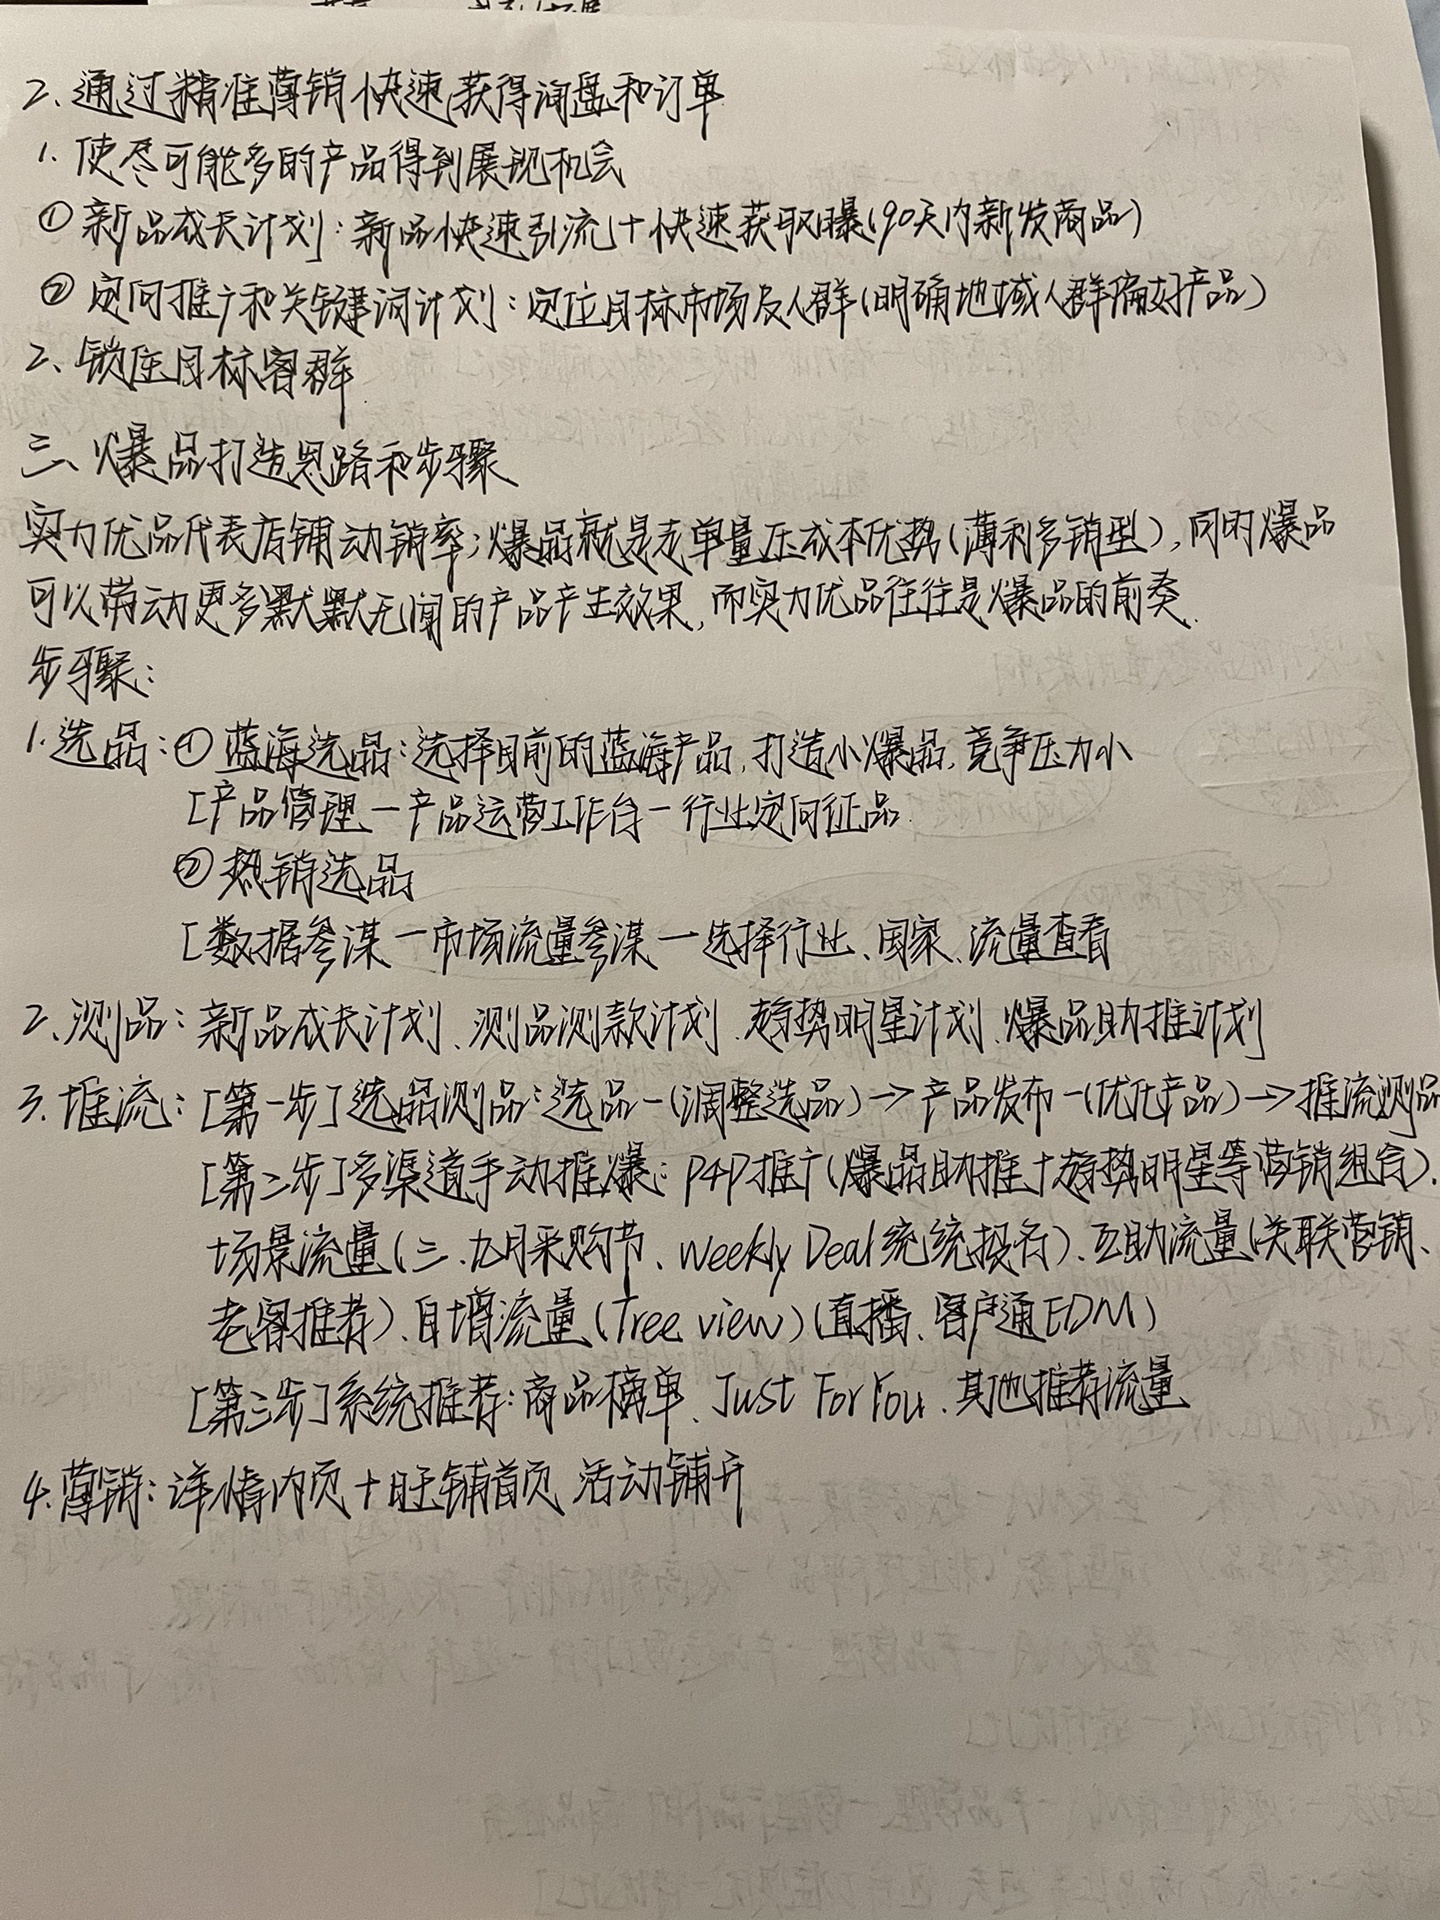 2、通过精准营销快速获得询盘和订单
1. 使尽可能多的产品得到展现机会
① 新品成长计划：新品快速引流＋快速获取曝(90天内新发商品)
② 定向推广和关键词计划：定位目标市场及人群(明确地域人群偏好产品)
2、锁住目标客群
三、爆品打造思路和步骤
实力优品代表店铺动销率；爆品就是走单量压成本优势(薄利多销型)，同时爆品
可以带动更多默默无闻的产品产生效果，而实力优品往往是爆品的前奏.
步骤：
1.选品：① 蓝海选品：选择目前的蓝海产品，打造小爆品，竞争压力小
[产品管理－产品运营工作台－行业定向征品
② 热销选品
[数据参谋－市场流量参谋－选择行业、国家、流量查看
2、测品：新品成长计划、测品测款计划、趋势明星计划、爆品助推计划
3.推流：[第一步]选品测品：选品－(调整选品)→产品发布－(优化产品)→推流测品
[第二步]多渠道手动推爆：P4P推广(爆品助推＋趋势明星等营销组合)、
场景流量(三、九月采购节、Weekly Deal统统报名)、互助流量(关联营销、
老客推荐)、自增流量(Tree view)(直播、客户通EDM)
[第三步]系统推荐：商品榜单、Just For You、其他推荐流量
4.营销：详情内页＋旺铺首页 活动铺开